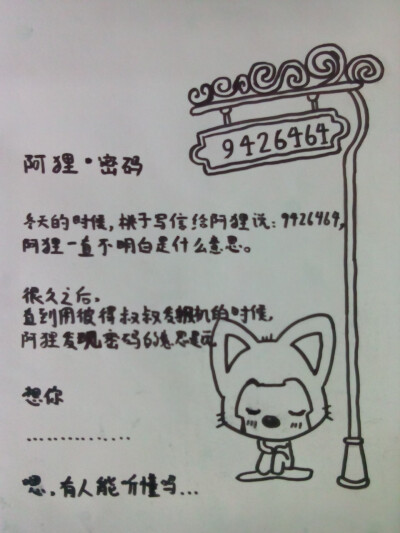 9426464
阿狸·密码
冬天的时候，桃子写信给阿狸说：9426464，
阿狸一直不明白是什么意思。
很久之后，
直到用彼得叔叔发报机的时候，
阿狸发现密码的意思是说
想你
……………
嗯，有人能听懂吗...